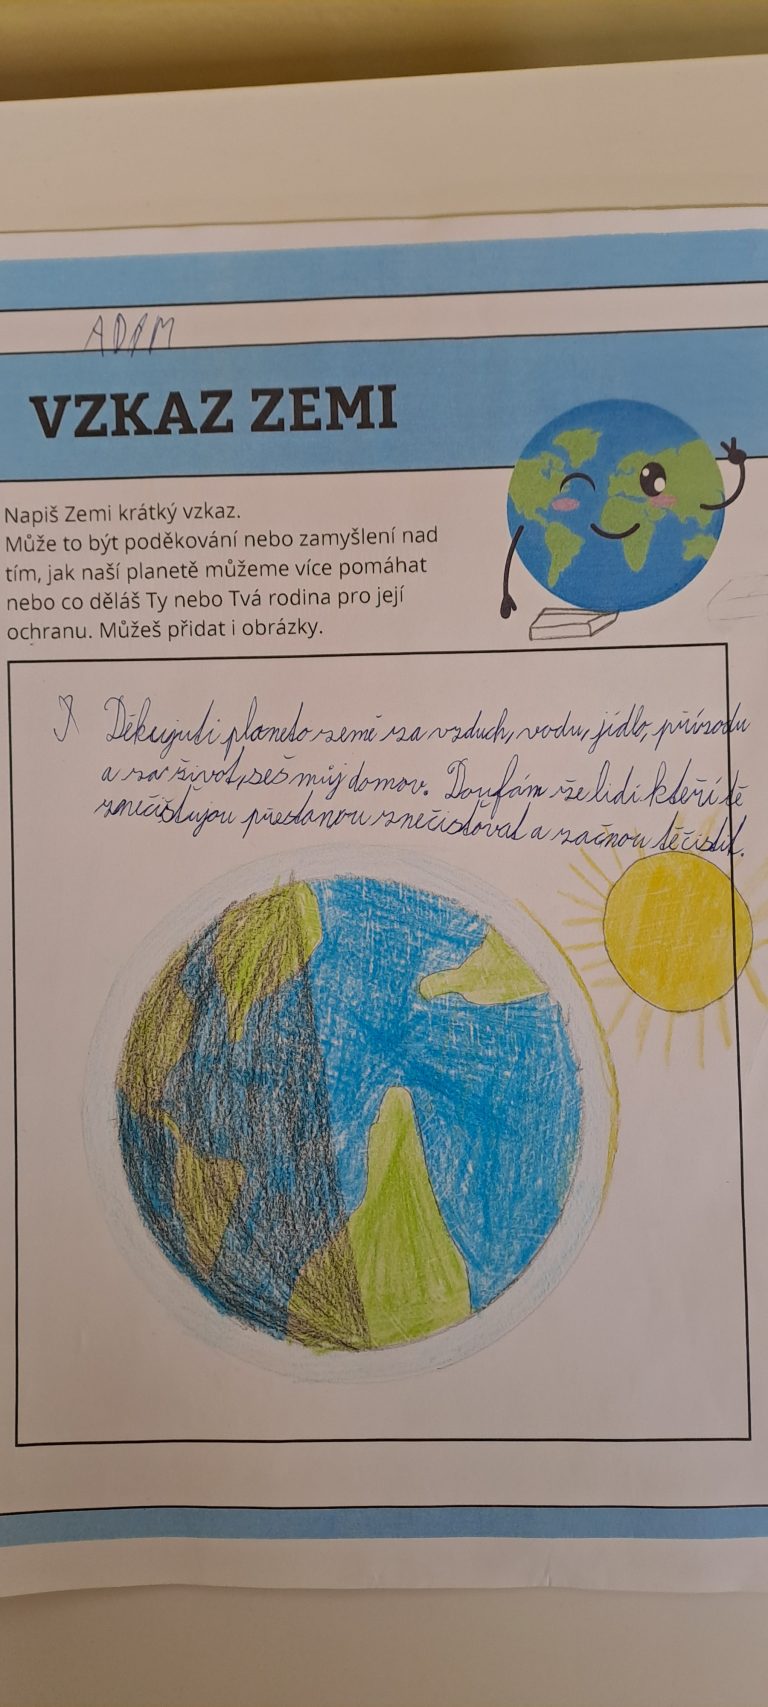 ADAM
VZKAZ ZEMI
Napiš Zemi krátký vzkaz.
Může to být poděkování nebo zamyšlení nad
tím, jak naší planetě můžeme více pomáhat
nebo co děláš Ty nebo Tvá rodina pro její
ochranu. Můžeš přidat i obrázky.
Děkuju ti planeto země za vzduch, vodu, jídlo, přírodu
a za život, seš můj domov. Doufám že lidi kteří tě
znečisťujou přestanou znečisťovat a začnou tě čistit.